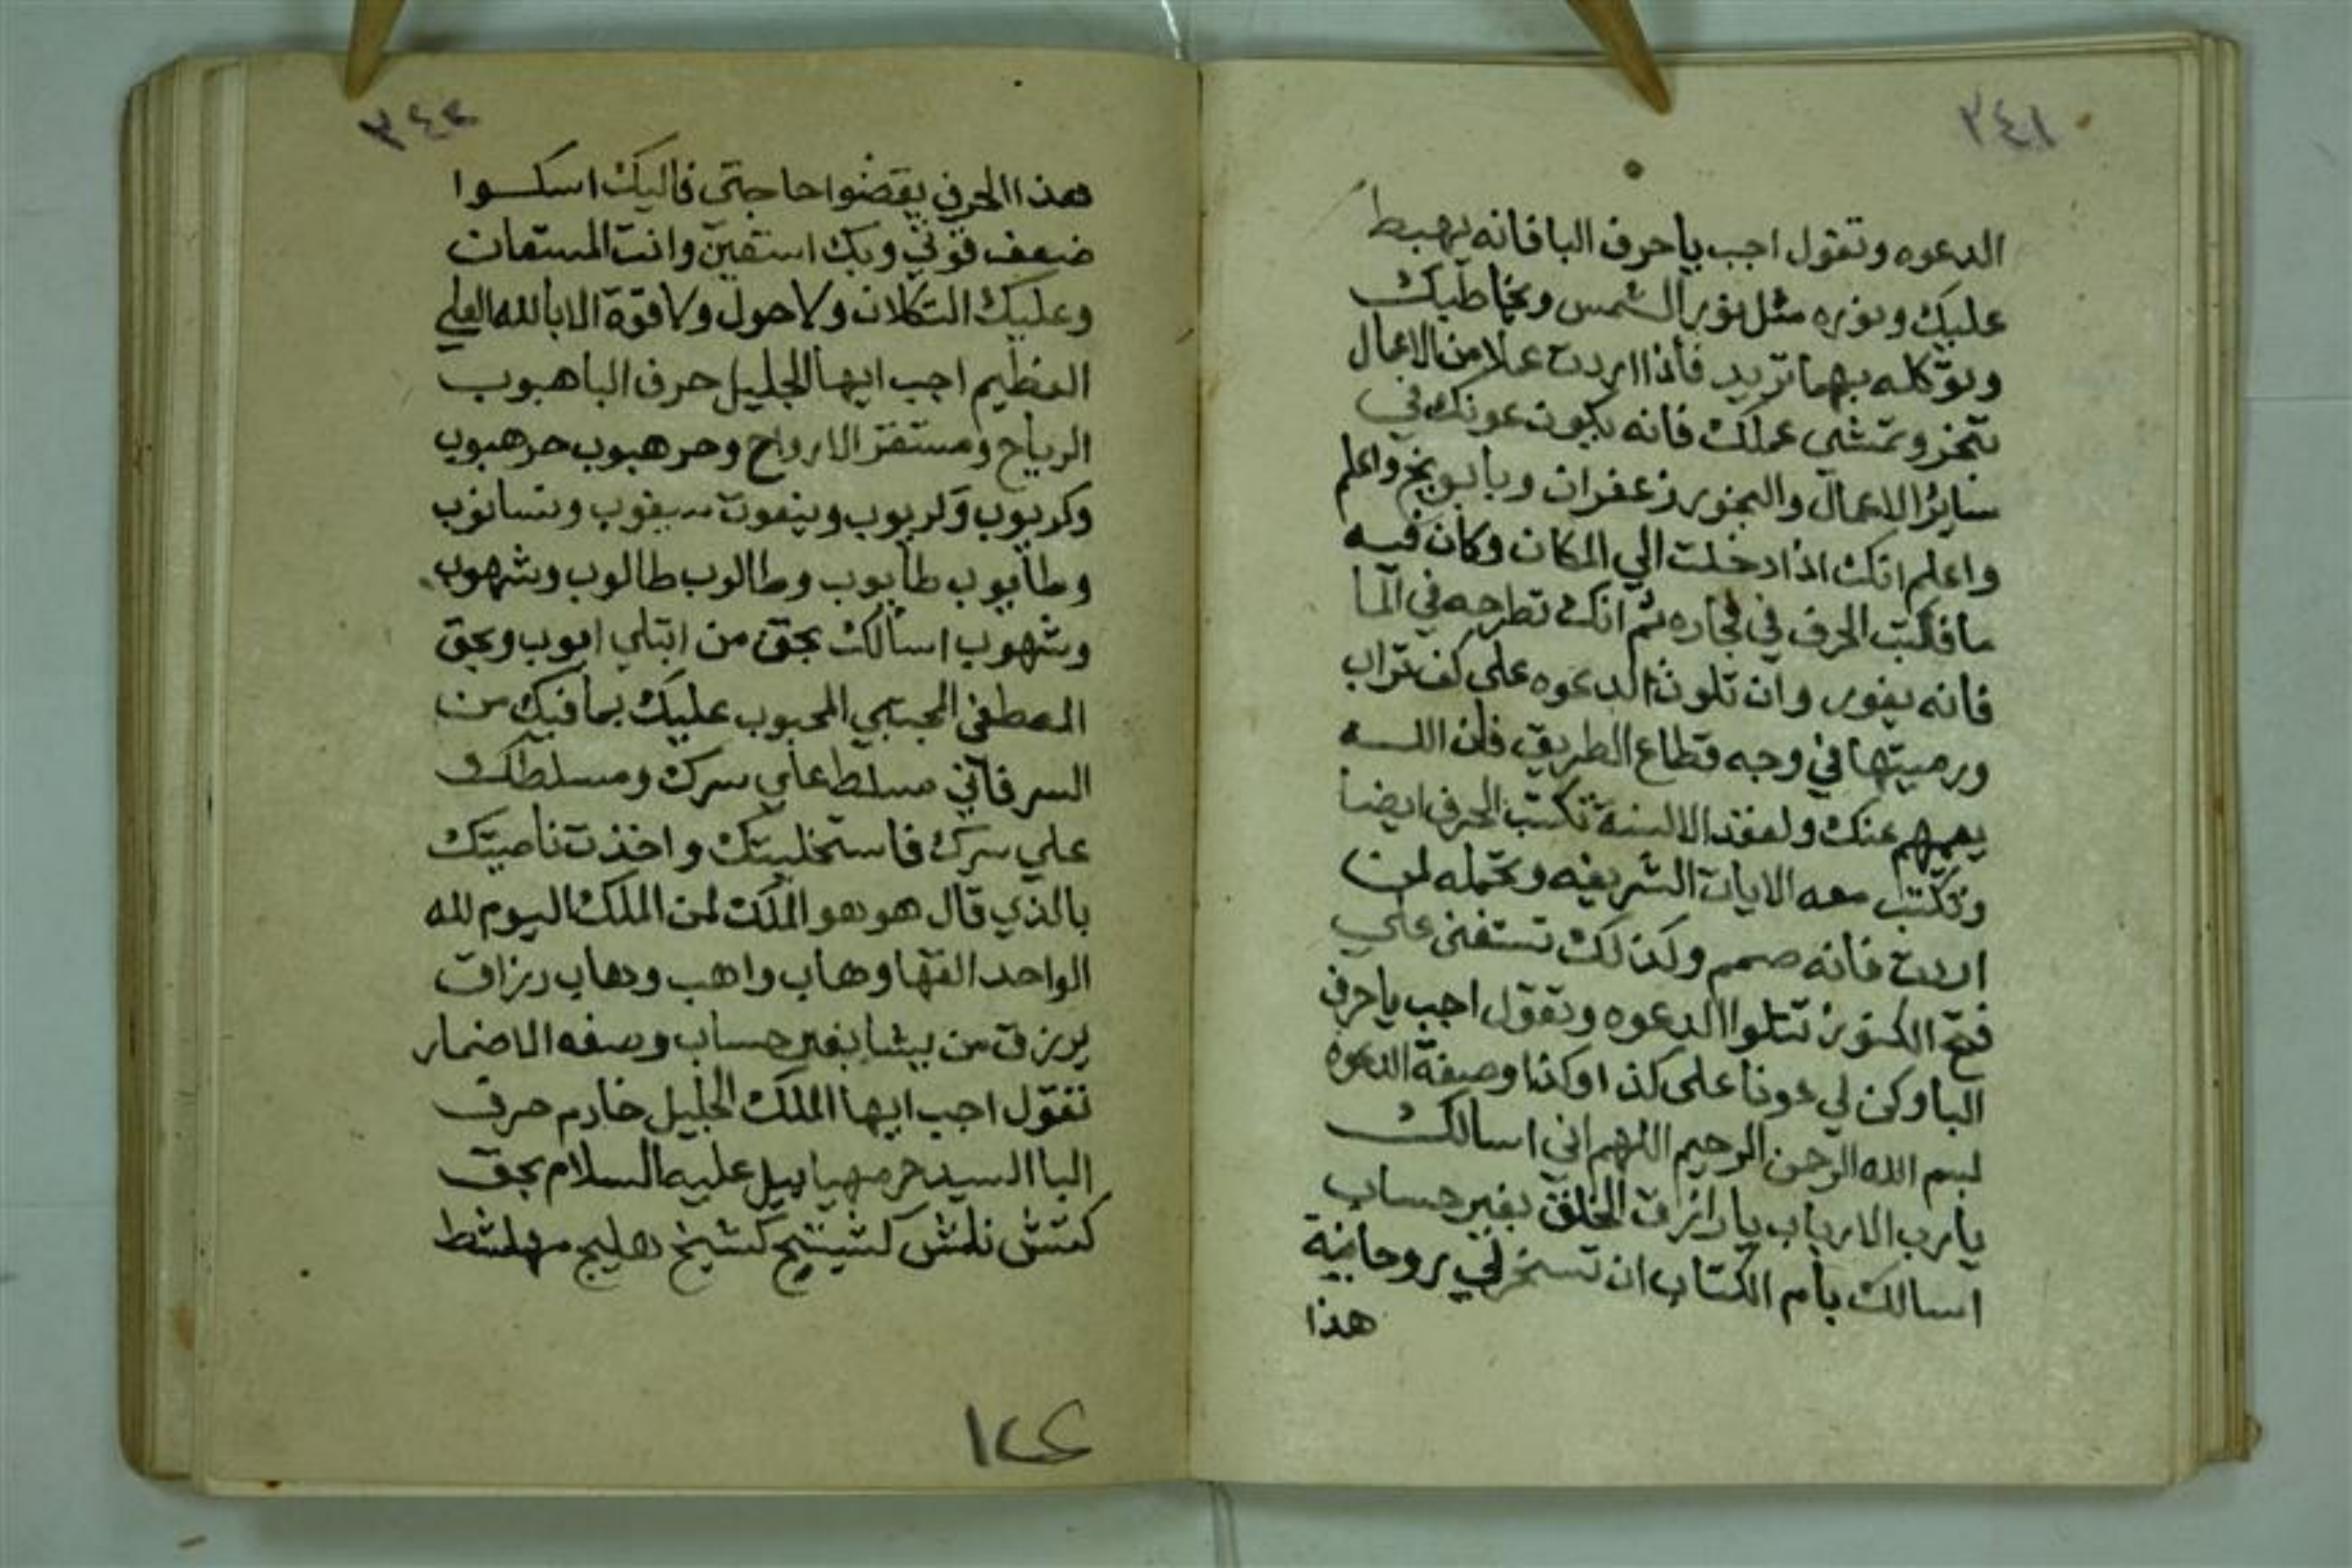 ٢٤١
الدعوه وتقول اجب ياحرف البا فانه يهبط
عليك ونوره مثل نور الشمس ويخاطبك
وتوكله بهما تريد فاذا اردت عملا من الاعمال
تبخر وتمشي عملك فانه يكون عونك في
ساير الاعمال والبخور زعفران وبابونج واعلم
واعلم انك اذا دخلت الي المكان وكان فيه
ما فكتب الحرف في فخاره ثم انك تطرحه في الما
فانه يغور وان تلوت الدعوه على كف تراب
ورميتها في وجه قطاع الطريق فان الله
يعميهم عنك ولعقد الالسنة تكتب الحرف ايضا
وتكتب معه الايات الشريفه وتحمله لمن
اردت فانه صمم وكذلك تستغنى علي
فتح الكنوز تتلوا الدعوه وتقول اجب ياحرف
البا وكن لي عونا على كذا وكذا وصفة الدعوه
بسم الله الرحمن الرحيم اللهم اني اسالك
يارب الارباب يا رازق الخلق بغير حساب
اسالك بام الكتاب ان تسخر لي روحانية
هذا
٢٤٢
هذا الحرف يقضوا حاجتي فاليك اسكوا
ضعف قوتي وبك استغين وانت المستعان
وعليك التكلان ولا حول ولا قوة الا بالله العلي
العظيم اجب ايها الجليل حرف البا هبوب
الرياح ومستقر الارواح وحر هبوب حر هبوب
وكربوب وكربوب
وطايوب طايوب وطالوب طالوب وشهوب
وشهوب اسالك بحق من ابتلي ايوب وبحق
المصطفى المجتبي المحبوب عليك بما فيك من
السر فاني مسلط علي سرك ومسلطك
علي سرك فاستخليتك واخذت ناصيتك
بالذي قال هو هو الملك لمن الملك اليوم لله
الواحد القهار وهاب واهب وهاب رزاق
يرزق من يشا بغير حساب وصفه الاضمار
تقول اجب ايها الملك الجليل خادم حرف
البا السيد حرمهياييل عليه السلام بحق